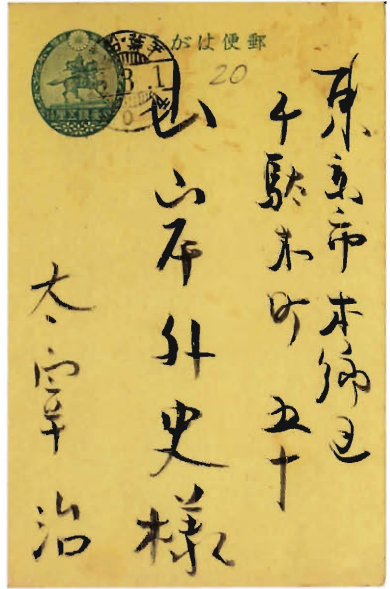 郵便はがき
20
8.1
東京市本郷区
千駄木町 五十
山岸外史様
太宰治